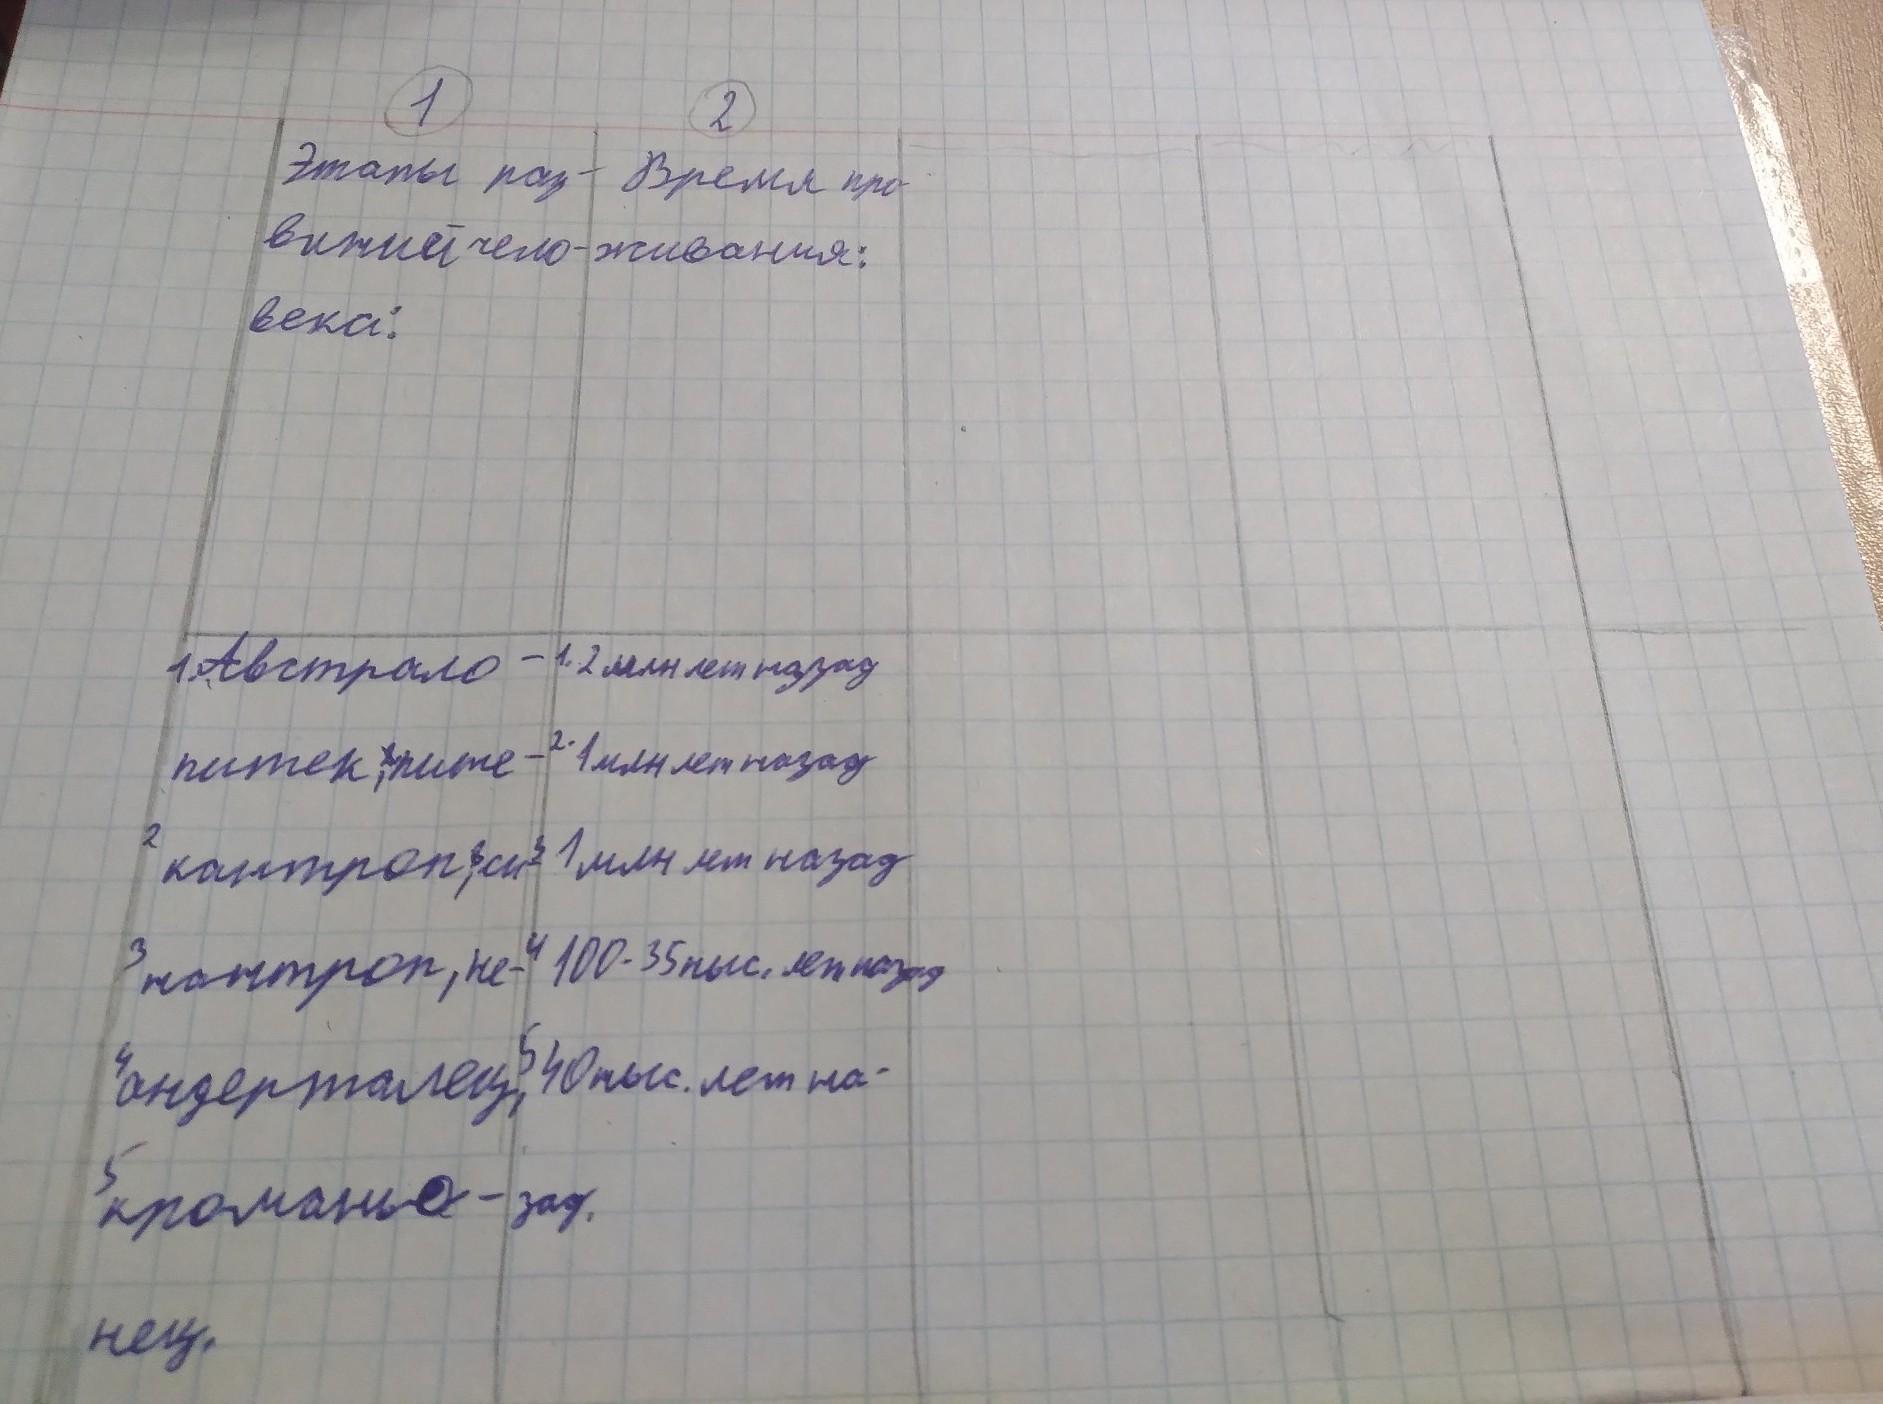 1 2
Этапы раз- Время про-
вития чело- живания:
века:
1. Австрало - 1. 2 млн лет назад
питек, 2 пите - 2. 1 млн лет назад
2 кантроп, 3 си 3 1 млн лет назад
3 нантроп, не- 4 100-35 тыс. лет назад
4 андерталец, 5 40 тыс. лет на-
5 кроманьо - зад.
нец.